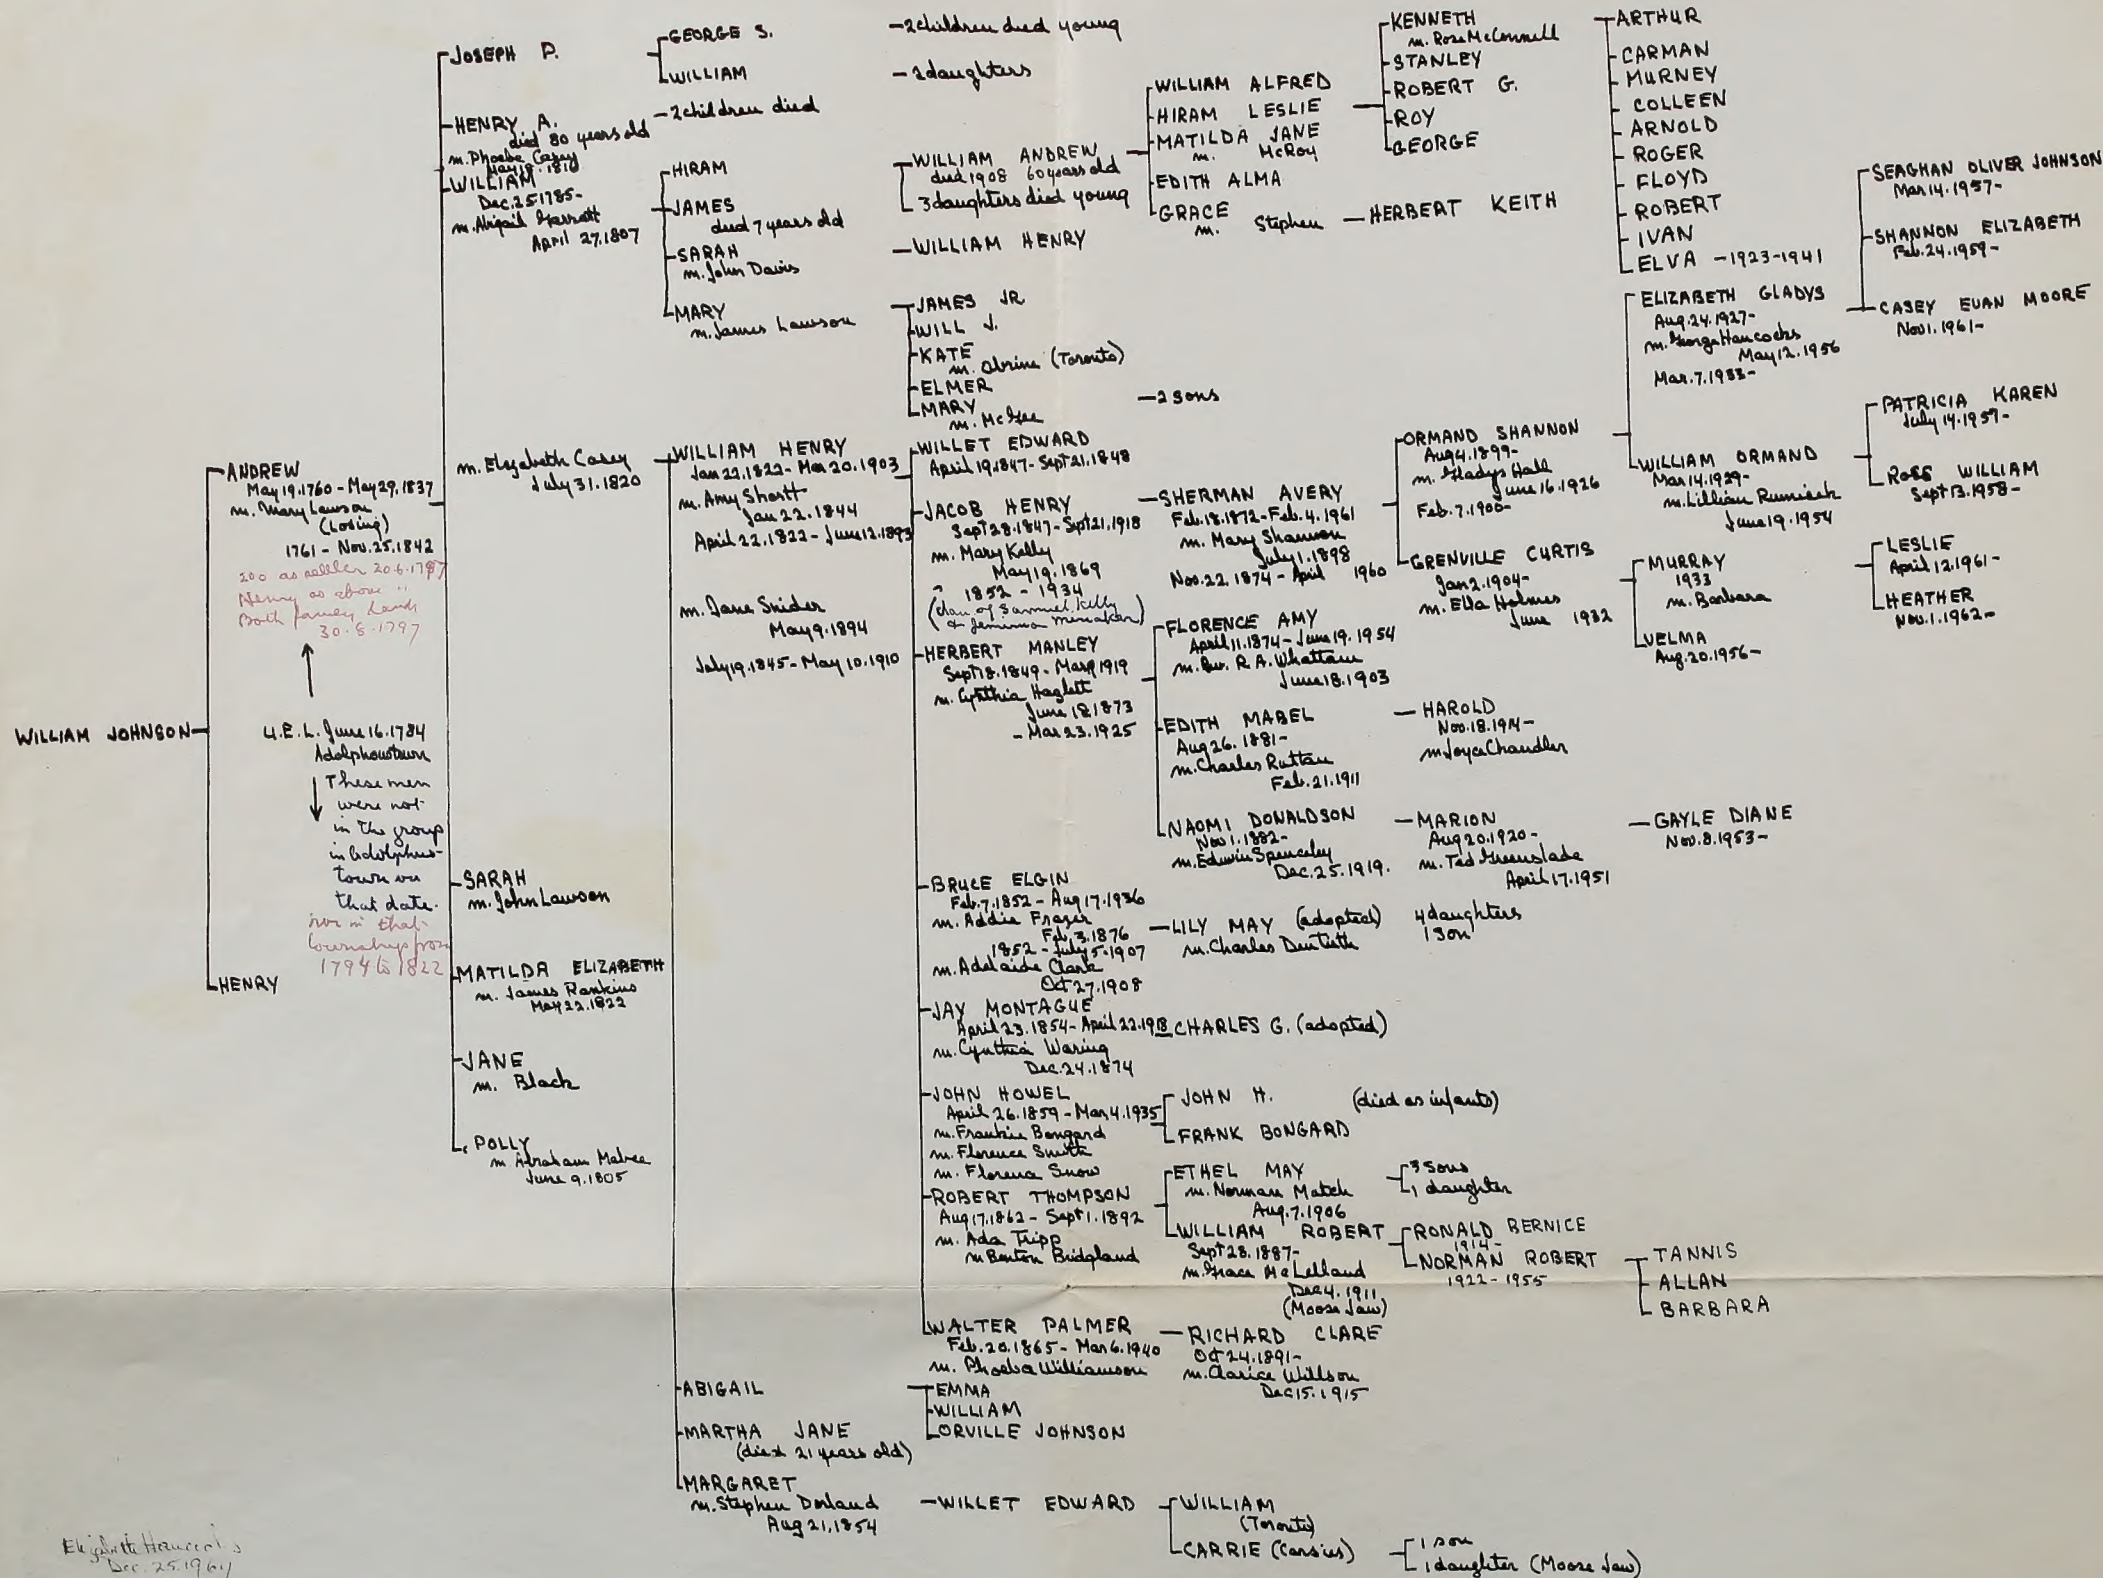 WILLIAM JOHNSON
ANDREW
May 19.1760 - May 29.1837
m. Mary Lawson
(Losing)
1761 - Nov.25.1842
200 as settler 20.6.1797
Henry as above "
Both family lands
30.8.1797
U.E.L. June 16.1784
Adolphustown
These men
were not
in the group
in Adolphus-
town on
that date.
nor in that
township from
1794 to 1822
HENRY
JOSEPH P.
HENRY A.
died 80 years old
m. Phoebe Casey
May 19.1818
WILLIAM
Dec.25.1785-
m. Abigail Garratt
April 27.1807
m. Elizabeth Casey
July 31.1820
SARAH
m. John Lawson
MATILDA ELIZABETH
m. James Rankins
May 22.1822
JANE
m. Black
POLLY
m Abraham Mabee
June 9.1805
GEORGE S.
WILLIAM
-2 children died
HIRAM
JAMES
died 7 years old
SARAH
m. John Davis
MARY
m. James Lawson
WILLIAM HENRY
Jan 22.1822 - Mar 20.1903
m. Amy Shortt
Jan 22.1844
April 22.1822 - June 12.1893
m. Jane Snider
May 9.1894
July 19.1845 - May 10.1910
ABIGAIL
MARTHA JANE
(died 21 years old)
MARGARET
m. Stephen Dorland
Aug 21.1854
-2 children died young
-2 daughters
WILLIAM ANDREW
died 1908 60 years old
3 daughters died young
-WILLIAM HENRY
JAMES JR
WILL J.
KATE
m. Obrine (Toronto)
ELMER
MARY
m. McGee
-2 sons
WILLET EDWARD
April 19.1847 - Sept 21.1848
JACOB HENRY
Sept 28.1847 - Sept 21.1918
m. Mary Kelly
May 19.1869
1852 - 1934
(dau of Samuel Kelly
HERBERT MANLEY
Sept 18.1849 - Mar 9 1919
m. Cynthia Haglett
June 18.1873
- Mar 23.1925
BRUCE ELGIN
Feb.7.1852 - Aug 17.1936
m. Addie Frazer
Feb.3.1876
1852 - July 5.1907
m. Adelaide Clark
Oct 27.1908
JAY MONTAGUE
April 23.1854 - April 22.1913
m. Cynthia Waring
Dec.24.1874
JOHN HOWEL
April 26.1859 - Mar 4.1935
m. Frankie Bongard
m. Florence Smith
m. Florence Snow
ROBERT THOMPSON
Aug 17.1862 - Sept 1.1892
m. Ada Tripp
m Benton Bridgland
WALTER PALMER
Feb.20.1865 - Mar 6.1940
m. Phoeba Williamson
EMMA
WILLIAM
ORVILLE JOHNSON
-WILLET EDWARD
WILLIAM ALFRED
HIRAM LESLIE
MATILDA JANE
m. McRoy
EDITH ALMA
GRACE
m. Stephen
SHERMAN AVERY
Feb.18.1872 - Feb.4.1961
m. Mary Shannon
July 1.1898
Nov.22.1874 - April 1960
FLORENCE AMY
April 11.1874 - June 19.1954
m. Rev. R.A. Whattam
June 18.1903
EDITH MABEL
Aug 26.1881-
m. Charles Ruttan
Feb.21.1911
NAOMI DONALDSON
Nov 1.1882-
m. Edwin Spenceley
Dec.25.1919.
LILY MAY (adopted)
m. Charles
CHARLES G. (adopted)
JOHN H. (died as infants)
FRANK BONGARD
ETHEL MAY
m. Norman Match
Aug.7.1906
WILLIAM ROBERT
Sept 28.1887-
m. Grace McLelland
Dec 4.1911
(Moose Jaw)
RICHARD CLARE
Oct 24.1891-
m. Clarice Willson
Dec 15.1915
WILLIAM
(Toronto)
CARRIE (Carsies)
KENNETH
m. Rose McConnell
STANLEY
ROBERT G.
ROY
GEORGE
-HERBERT KEITH
ORMAND SHANNON
Aug 4.1899-
m. Gladys Hall
June 16.1926
Feb.7.1900-
GRENVILLE CURTIS
Jan 2.1904-
m. Ella Holmes
June 1932
HAROLD
Nov.18.1914-
m Joyce Chandler
MARION
Aug 20.1920-
m. Ted Greenslade
April 17.1951
4 daughters
1 son
3 sons
1 daughter
RONALD BERNICE
1914-
NORMAN ROBERT
1922 - 1955
1 son
1 daughter (Moose Jaw)
ARTHUR
CARMAN
MURNEY
COLLEEN
ARNOLD
ROGER
FLOYD
ROBERT
IVAN
ELVA -1923-1941
ELIZABETH GLADYS
Aug.24.1927-
m. George Hancocks
May 12.1956
Mar.7.1933-
WILLIAM ORMAND
Mar 14.1929-
m. Lillian
June 19.1954
MURRAY
1933
m. Barbara
VELMA
Aug.20.1956-
GAYLE DIANE
Nov.8.1953-
TANNIS
ALLAN
BARBARA
SEAGHAN OLIVER JOHNSON
Mar 14.1957-
SHANNON ELIZABETH
Feb.24.1959-
CASEY EVAN MOORE
Nov 1.1961-
PATRICIA KAREN
July 14.1957-
ROSS WILLIAM
Sept 13.1958-
LESLIE
April 12.1961-
HEATHER
Nov.1.1962-
Elizabeth Hancocks
Dec.25.1964